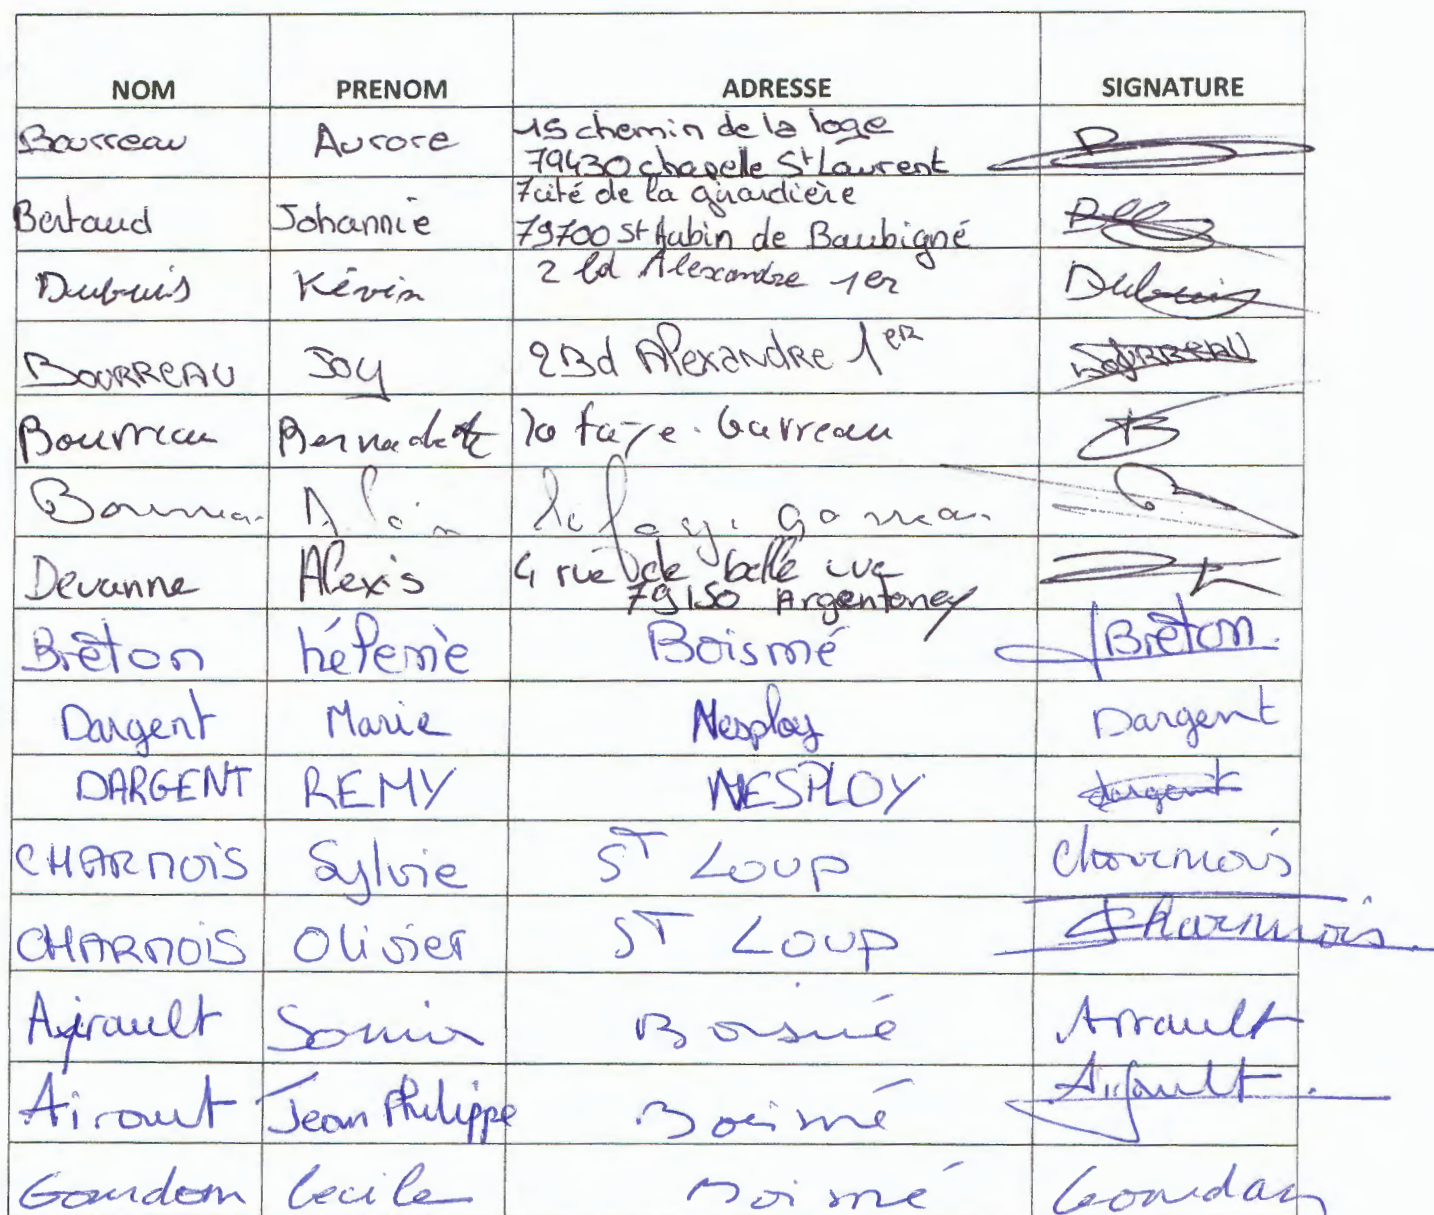 NOM PRENOM ADRESSE SIGNATURE
Bourreau Aurore 15 chemin de la loge
79430 chapelle St Laurent
Bertaud Johannie 7 cité de la girardière
79700 St Aubin de Baubigné
Dubuis Kévin 2 bd Alexandre 1er Dubuis
BOURREAU Joy 2 Bd Alexandre 1er BOURREAU
Bourreau Bernadette la faye. Garreau B
Bourreau Alain la faye. Garreau
Devanne Alexis 4 rue de belle vue
79150 Argentonay
Brêton hélène Boismé Brêton.
Dargent Marie Nesploy Dargent
DARGENT REMY NESPLOY dargent
CHARNOIS Sylvie ST LOUP Charnois
CHARNOIS Olivier ST LOUP Charnois.
Airault Sonia Boismé Airault
Airault Jean Philippe Boismé Airault
Gourdon Cecile Boismé Gourdon